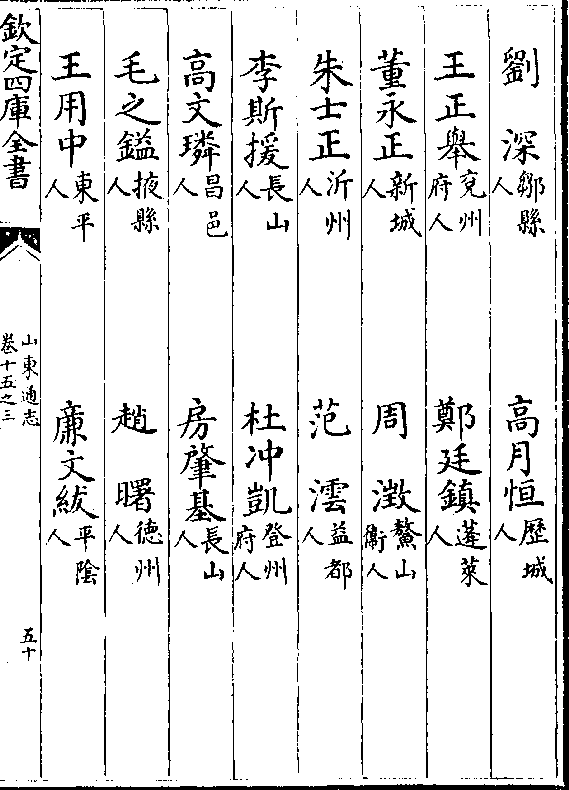 劉深鄒縣人 高月恒歷城人
王正舉兖州府人 鄭廷鎮蓬萊人
董永正新城人 周澂鰲山衞人
朱士正沂州人 范澐益都人
李斯援長山人 杜冲凱登州府人
高文璘昌邑人 房肇基長山人
毛之鎰掖縣人 趙曙德州人
王用中東平人 亷文紱平陰人
欽定四庫全書 山東通志 卷十五之三 五十